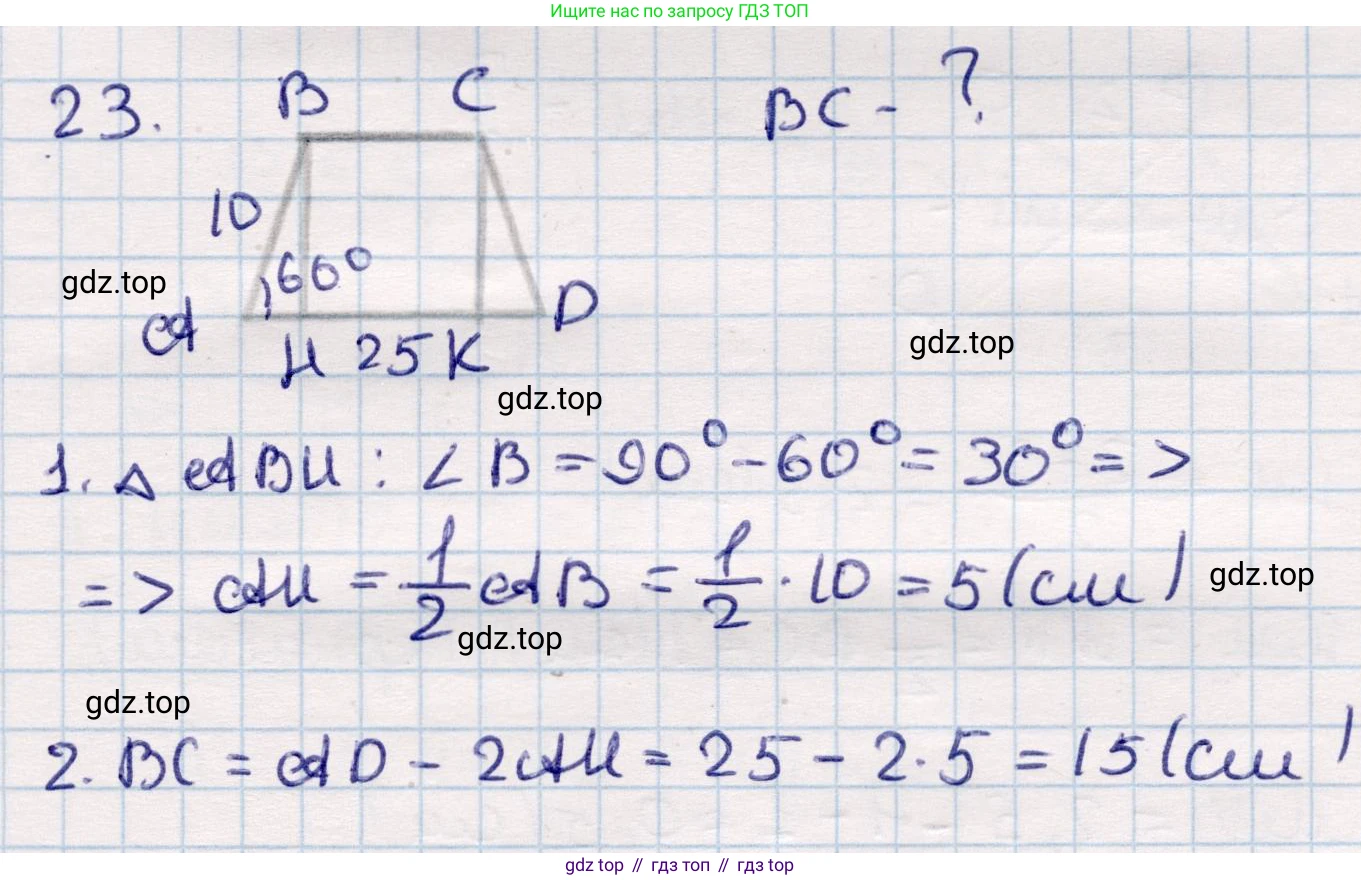 Ищите нас по запросу ГДЗ ТОП
23. B C BC - ?
10
60°
gdz.top
A H 25 K D
gdz.top
gdz.top
1. △ ABH : ∠ B = 90° - 60° = 30° = >
= > AH = 1/2 AB = 1/2 · 10 = 5 (см)
gdz.top
gdz.top
gdz.top
2. BC = AD - 2AH = 25 - 2·5 = 15 (см)
gdz.top // гдз топ // gdz top